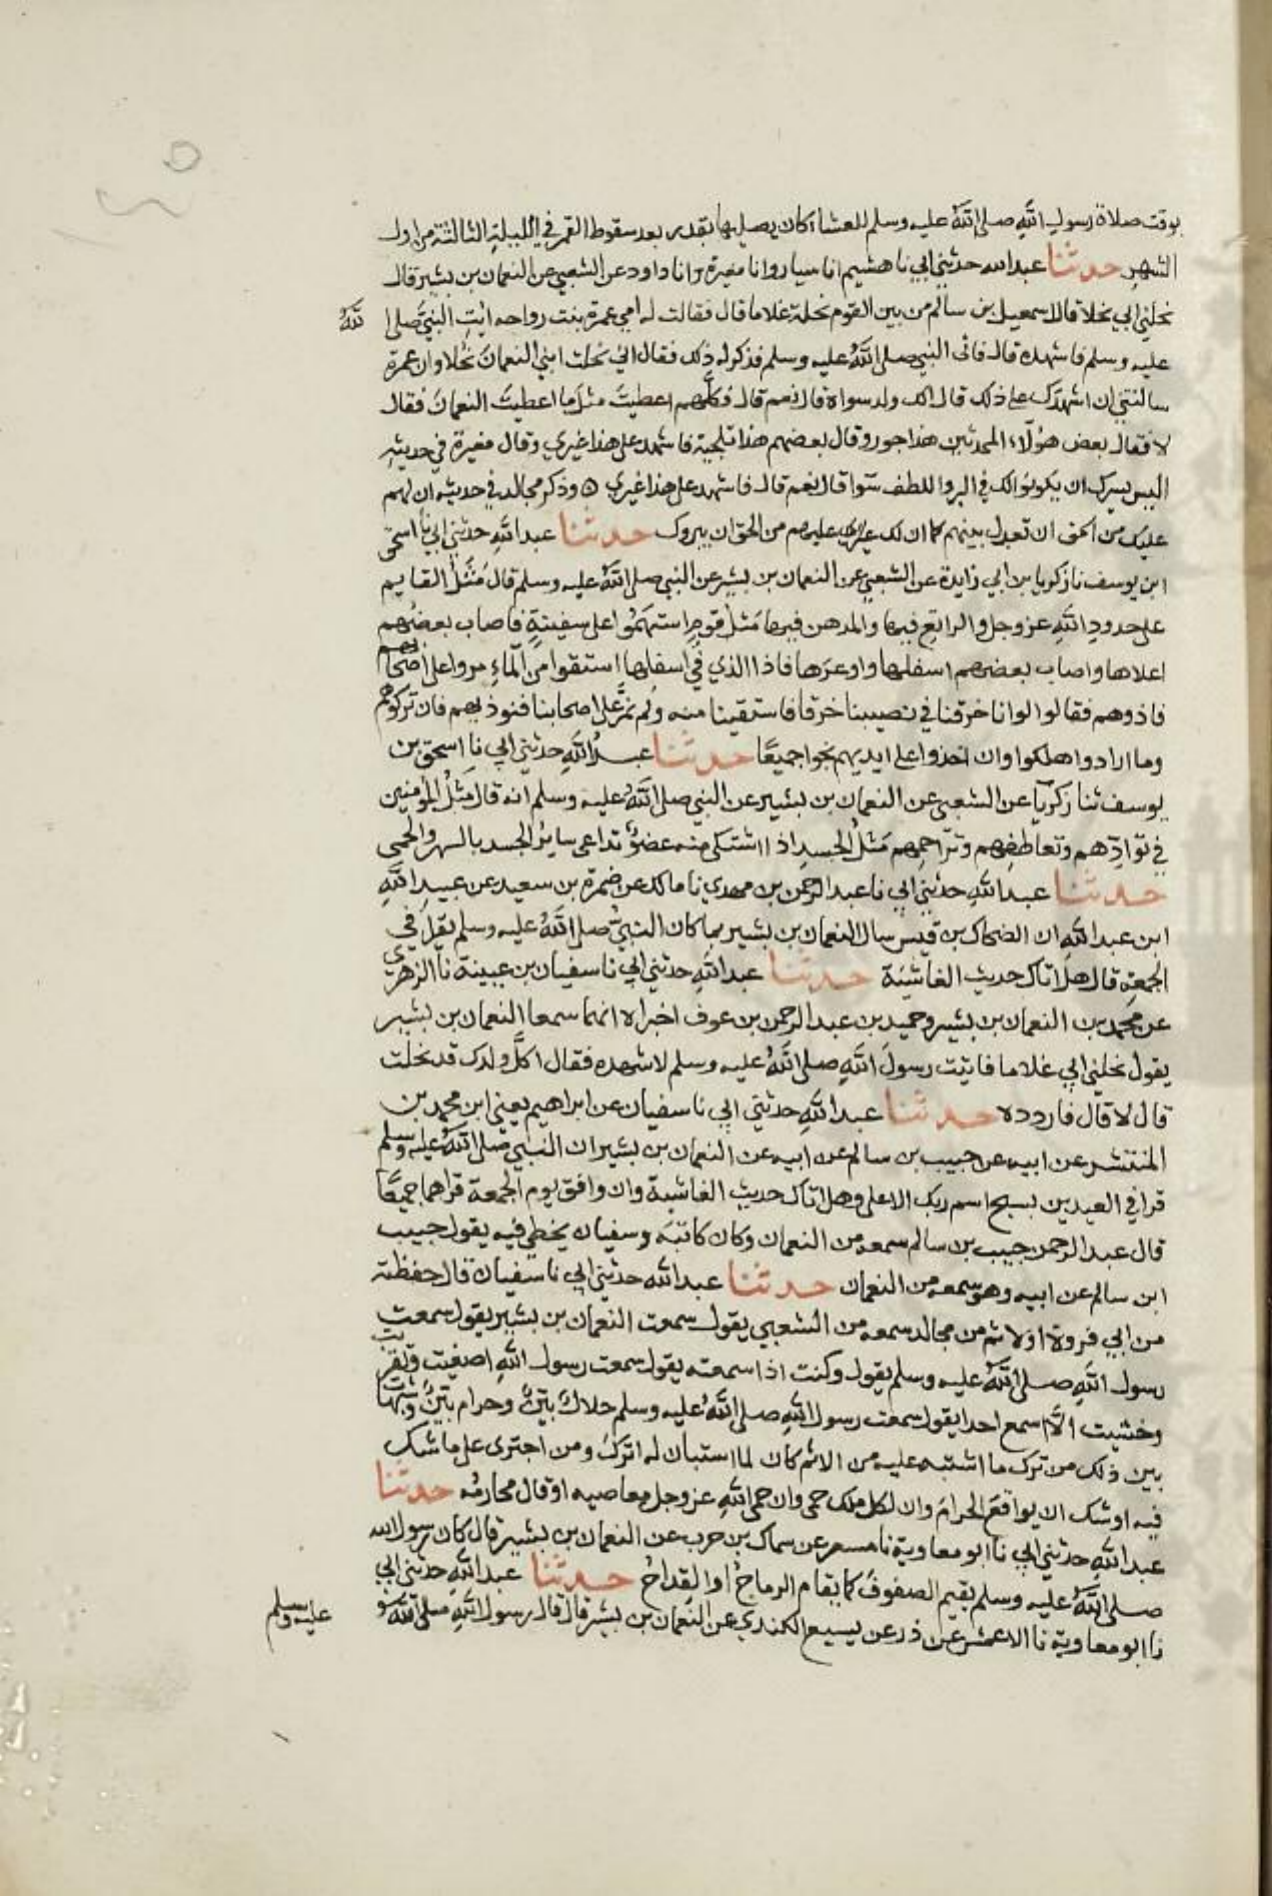 بوقت صلاة رسول الله صلى الله عليه وسلم للعشاء كان يصليها بقدر بعد سقوط القمر في الليلة الثالثة من اول
الشهر حدثنا عبد الله حدثني ابي نا هشيم انا سيار وانا مغيرة وانا داود عن الشعبي عن النعمان بن بشير قال
نحلني ابي نحلا قال اسمعيل بن سالم من بين القوم نحلة غلاما قال فقالت له امي عمرة بنت رواحه ايت النبي صلى الله
عليه وسلم فاشهده قال فاتى النبي صلى الله عليه وسلم فذكر له ذلك فقال اني نحلت ابني النعمان نحلا وان عمرة
سالتني ان اشهدك على ذلك قال الك ولد سواه قال نعم قال فكلهم اعطيت مثل ما اعطيت النعمان فقال
لا فقال بعض هؤلاء المحدثين هذا جور وقال بعضهم هذا تلجية فاشهد على هذا غيري وقال مغيرة في حديثه
اليس يسرك ان يكونوا لك في البر واللطف سوا قال نعم قال فاشهد على هذا غيري ه وذكر مجالد في حديثه ان لهم
عليك من الحق ان تعدل بينهم كما ان لك عليهم من الحق ان يبروك حدثنا عبد الله حدثني ابي نا اسحق
ابن يوسف نا زكريا بن ابي زايدة عن الشعبي عن النعمان بن بشير عن النبي صلى الله عليه وسلم قال مثل القايم
على حدود الله عز وجل والراتع فيها والمدهن فيها مثل قوم استهموا على سفينة فاصاب بعضهم
اعلاها واصاب بعضهم اسفلها واوعرها فاذا الذي في اسفلها استقوا من الماء مروا على اصحابهم
فاذوهم فقالوا لو انا خرقنا في نصيبنا خرقا فاستقينا منه ولم نمر على اصحابنا فنوذيهم فان تركوهم
وما ارادوا هلكوا وان اخذوا على ايديهم نجوا جميعا حدثنا عبد الله حدثني ابي نا اسحق بن
يوسف ثنا زكريا عن الشعبي عن النعمان بن بشير عن النبي صلى الله عليه وسلم انه قال مثل المومنين
في توادهم وتعاطفهم وتراحمهم مثل الجسد اذا اشتكى منه عضو تداعى ساير الجسد بالسهر والحمى
حدثنا عبد الله حدثني ابي نا عبد الرحمن بن مهدي نا مالك عن ضمرة بن سعيد عن عبيد الله
ابن عبد الله ان الضحاك بن قيس سال النعمان بن بشير بما كان النبي صلى الله عليه وسلم يقرا في
الجمعة قال هل اتاك حديث الغاشية حدثنا عبد الله حدثني ابي نا سفيان بن عيينة نا الزهري
عن محمد بن النعمان بن بشير وحميد بن عبد الرحمن بن عوف اخبراه انهما سمعا النعمان بن بشير
يقول نحلني ابي غلاما فاتيت رسول الله صلى الله عليه وسلم لاشهده فقال اكل ولدك قد نحلت
قال لا قال فاردده حدثنا عبد الله حدثني ابي نا سفيان عن ابراهيم يعني ابن محمد بن
المنتشر عن ابيه عن حبيب بن سالم عن ابيه عن النعمان بن بشير ان النبي صلى الله عليه وسلم
قرا في العيدين بسبح اسم ربك الاعلى وهل اتاك حديث الغاشية وان وافق يوم الجمعة قراهما جميعا
قال عبد الرحمن حبيب بن سالم سمعه من النعمان وكان كاتبه وسفيان يخطي فيه يقول حبيب
ابن سالم عن ابيه وهو سمعه من النعمان حدثنا عبد الله حدثني ابي نا سفيان قال حفظته
من ابي فروة اولا ثم من مجالد سمعه من الشعبي يقول سمعت النعمان بن بشير يقول سمعت
رسول الله صلى الله عليه وسلم يقول وكنت اذا سمعته يقول سمعت رسول الله اصغيت وتقربت
وخشيت الا اسمع احدا يقول سمعت رسول الله صلى الله عليه وسلم حلال بين وحرام بين وشبهات
بين ذلك من ترك ما اشتبه عليه من الاثم كان لما استبان له اترك ومن اجترى على ما شك
فيه اوشك ان يواقع الحرام وان لكل ملك حمى وان حمى الله عز وجل معاصيه او قال محارمه حدثنا
عبد الله حدثني ابي نا ابو معاوية نا مسعر عن سماك بن حرب عن النعمان بن بشير قال كان رسول الله
صلى الله عليه وسلم يقيم الصفوف كما يقام الرماح او القداح حدثنا عبد الله حدثني ابي
نا ابو معاوية نا الاعمش عن ذر عن يسيع الكندي عن النعمان بن بشير قال قال رسول الله صلى الله
عليه وسلم